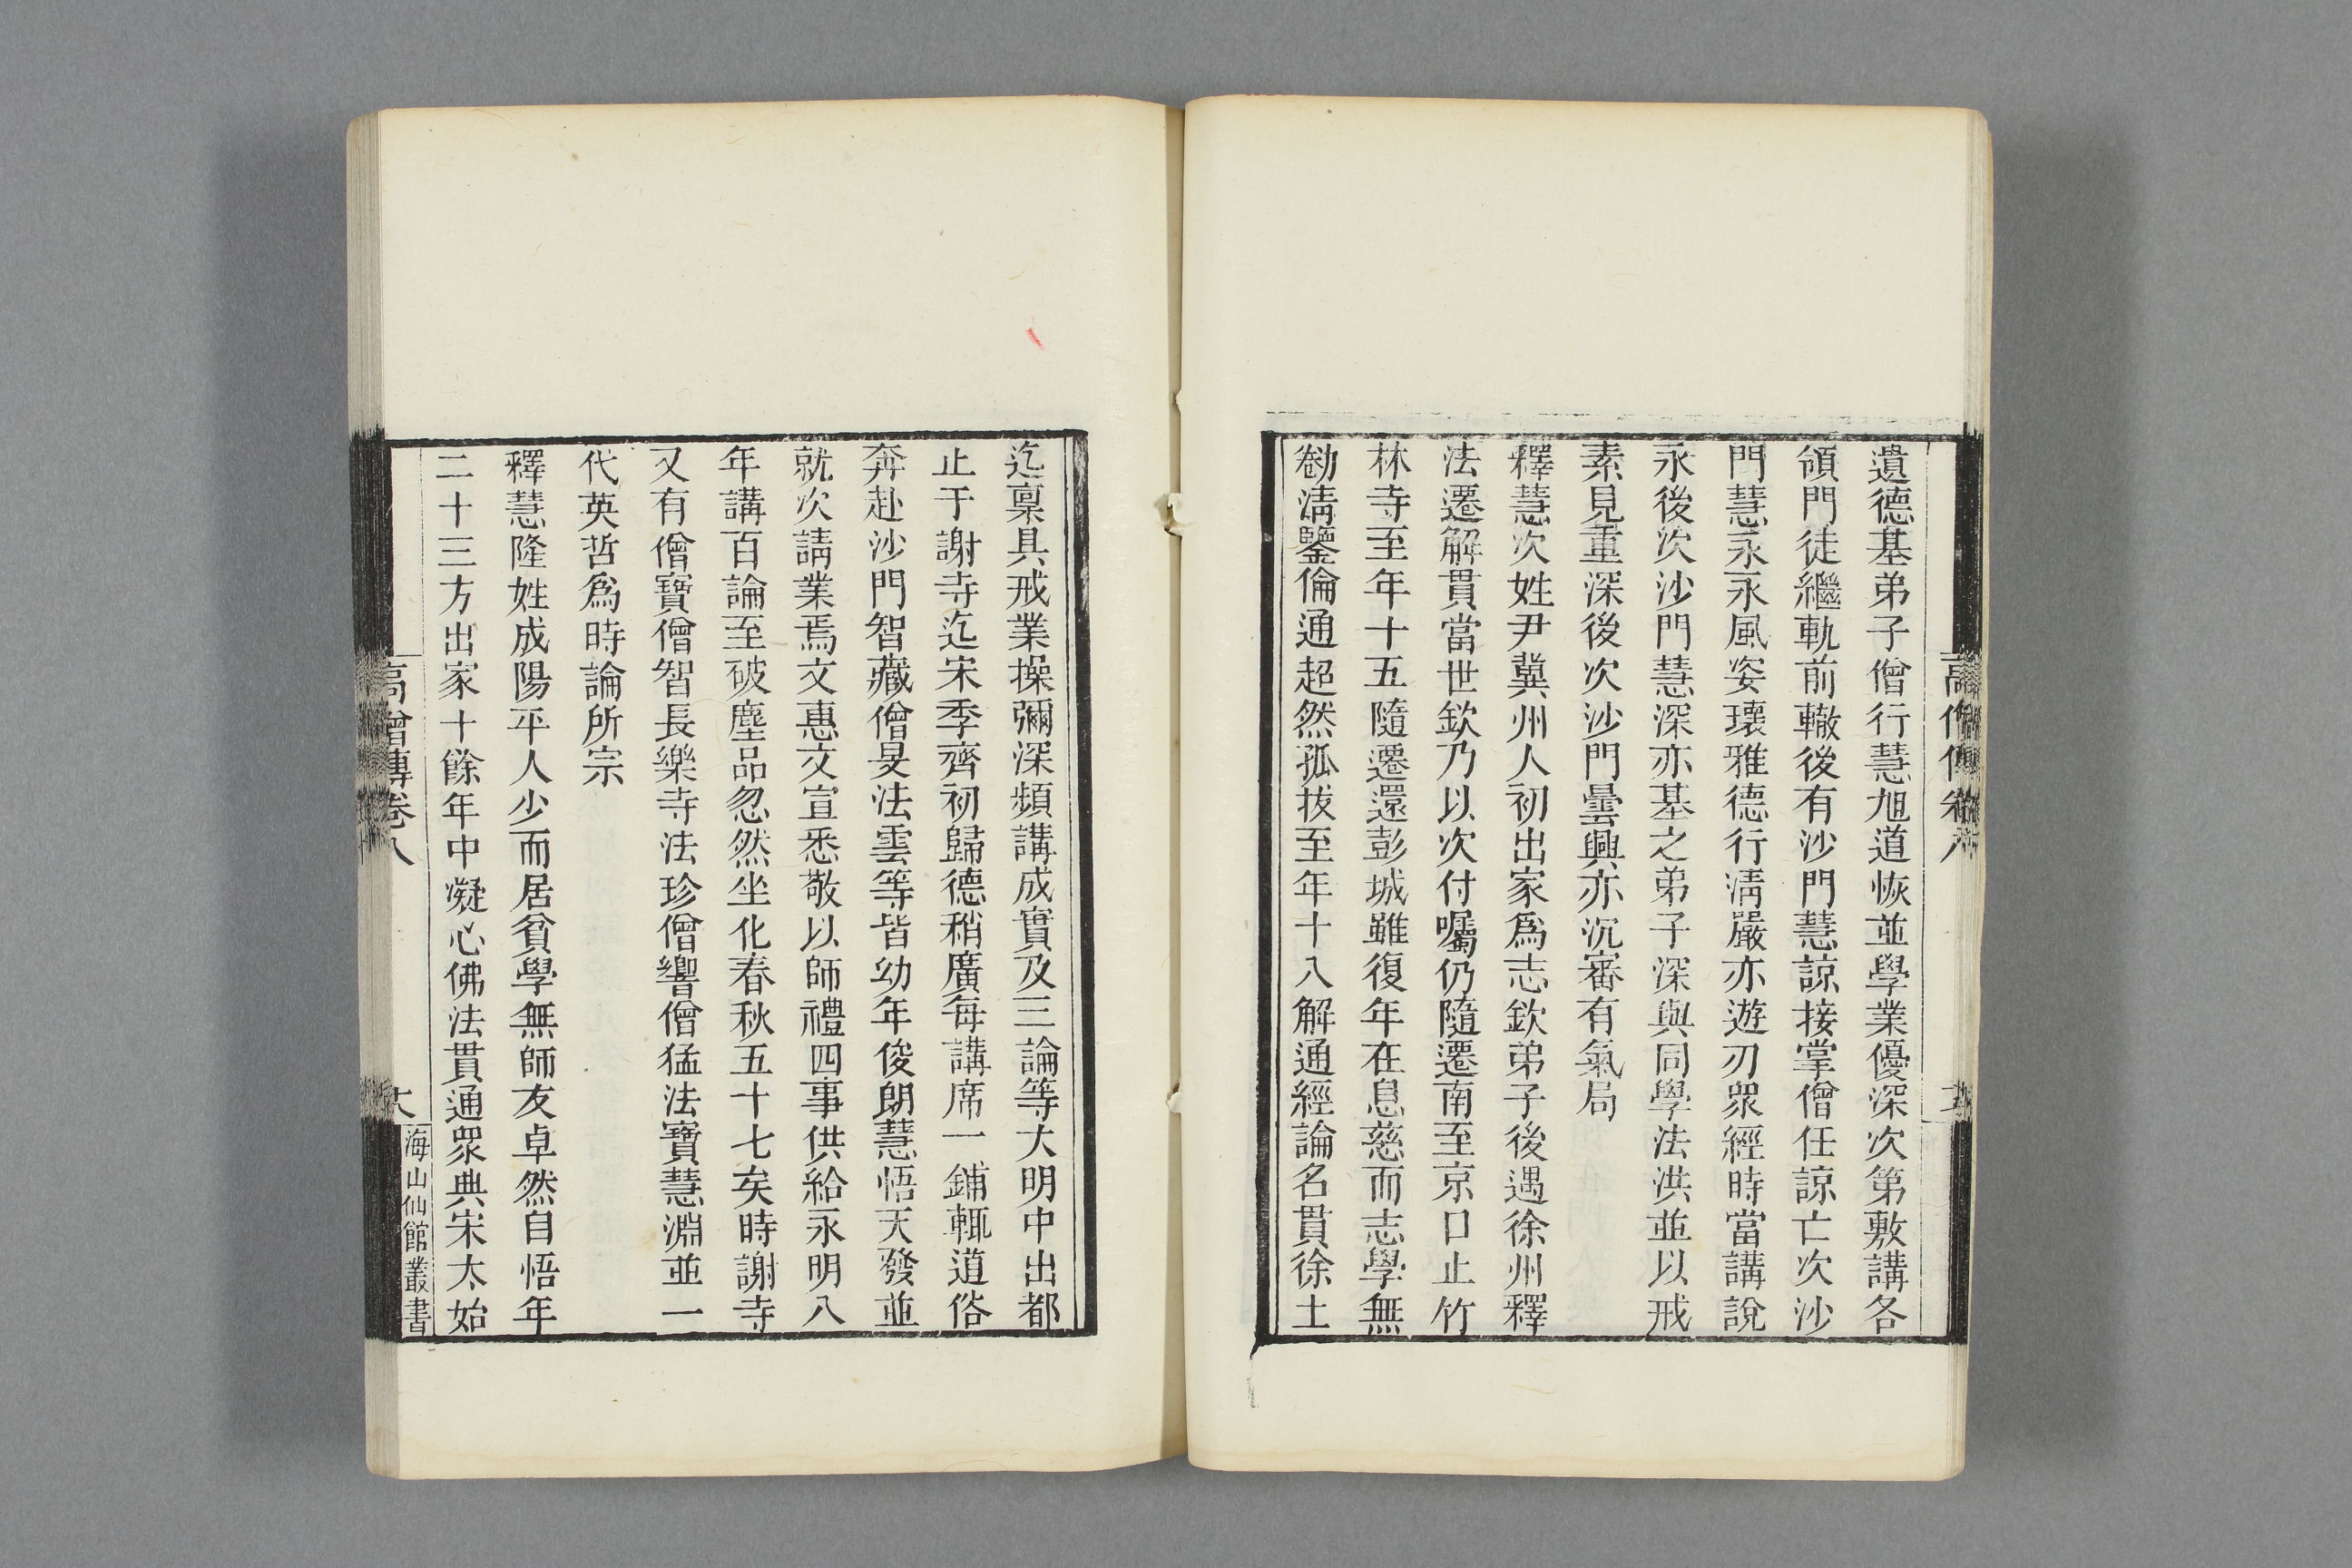 遺德基弟子僧行慧旭道恢並學業優深次第敷講各
領門徒繼軌前轍後有沙門慧諒接掌僧任諒亡次沙
門慧永永風姿瓌雅德行淸嚴亦遊刃衆經時當講說
永後次沙門慧深亦基之弟子深與同學法洪並以戒
素見重深後次沙門曇興亦沉審有氣局
釋慧次姓尹冀州人初出家爲志欽弟子後遇徐州釋
法遷解貫當世欽乃以次付囑仍隨遷南至京口止竹
林寺至年十五隨遷還彭城雖復年在息慈而志學無
勌淸鑒倫通超然孤拔至年十八解通經論名貫徐土
迄稟具戒業操彌深頻講成實及三論等大明中出都
止于謝寺迄宋季齊初歸德稍廣每講席一鋪輒道俗
奔赴沙門智藏僧旻法雲等皆幼年俊朗慧悟天發並
就次請業焉文惠文宣悉敬以師禮四事供給永明八
年講百論至破塵品忽然坐化春秋五十七矣時謝寺
又有僧寶僧智長樂寺法珍僧響僧猛法寶慧淵並一
代英哲爲時論所宗
釋慧隆姓成陽平人少而居貧學無師友卓然自悟年
二十三方出家十餘年中凝心佛法貫通衆典宋太始
高僧傳卷八
海山仙館叢書